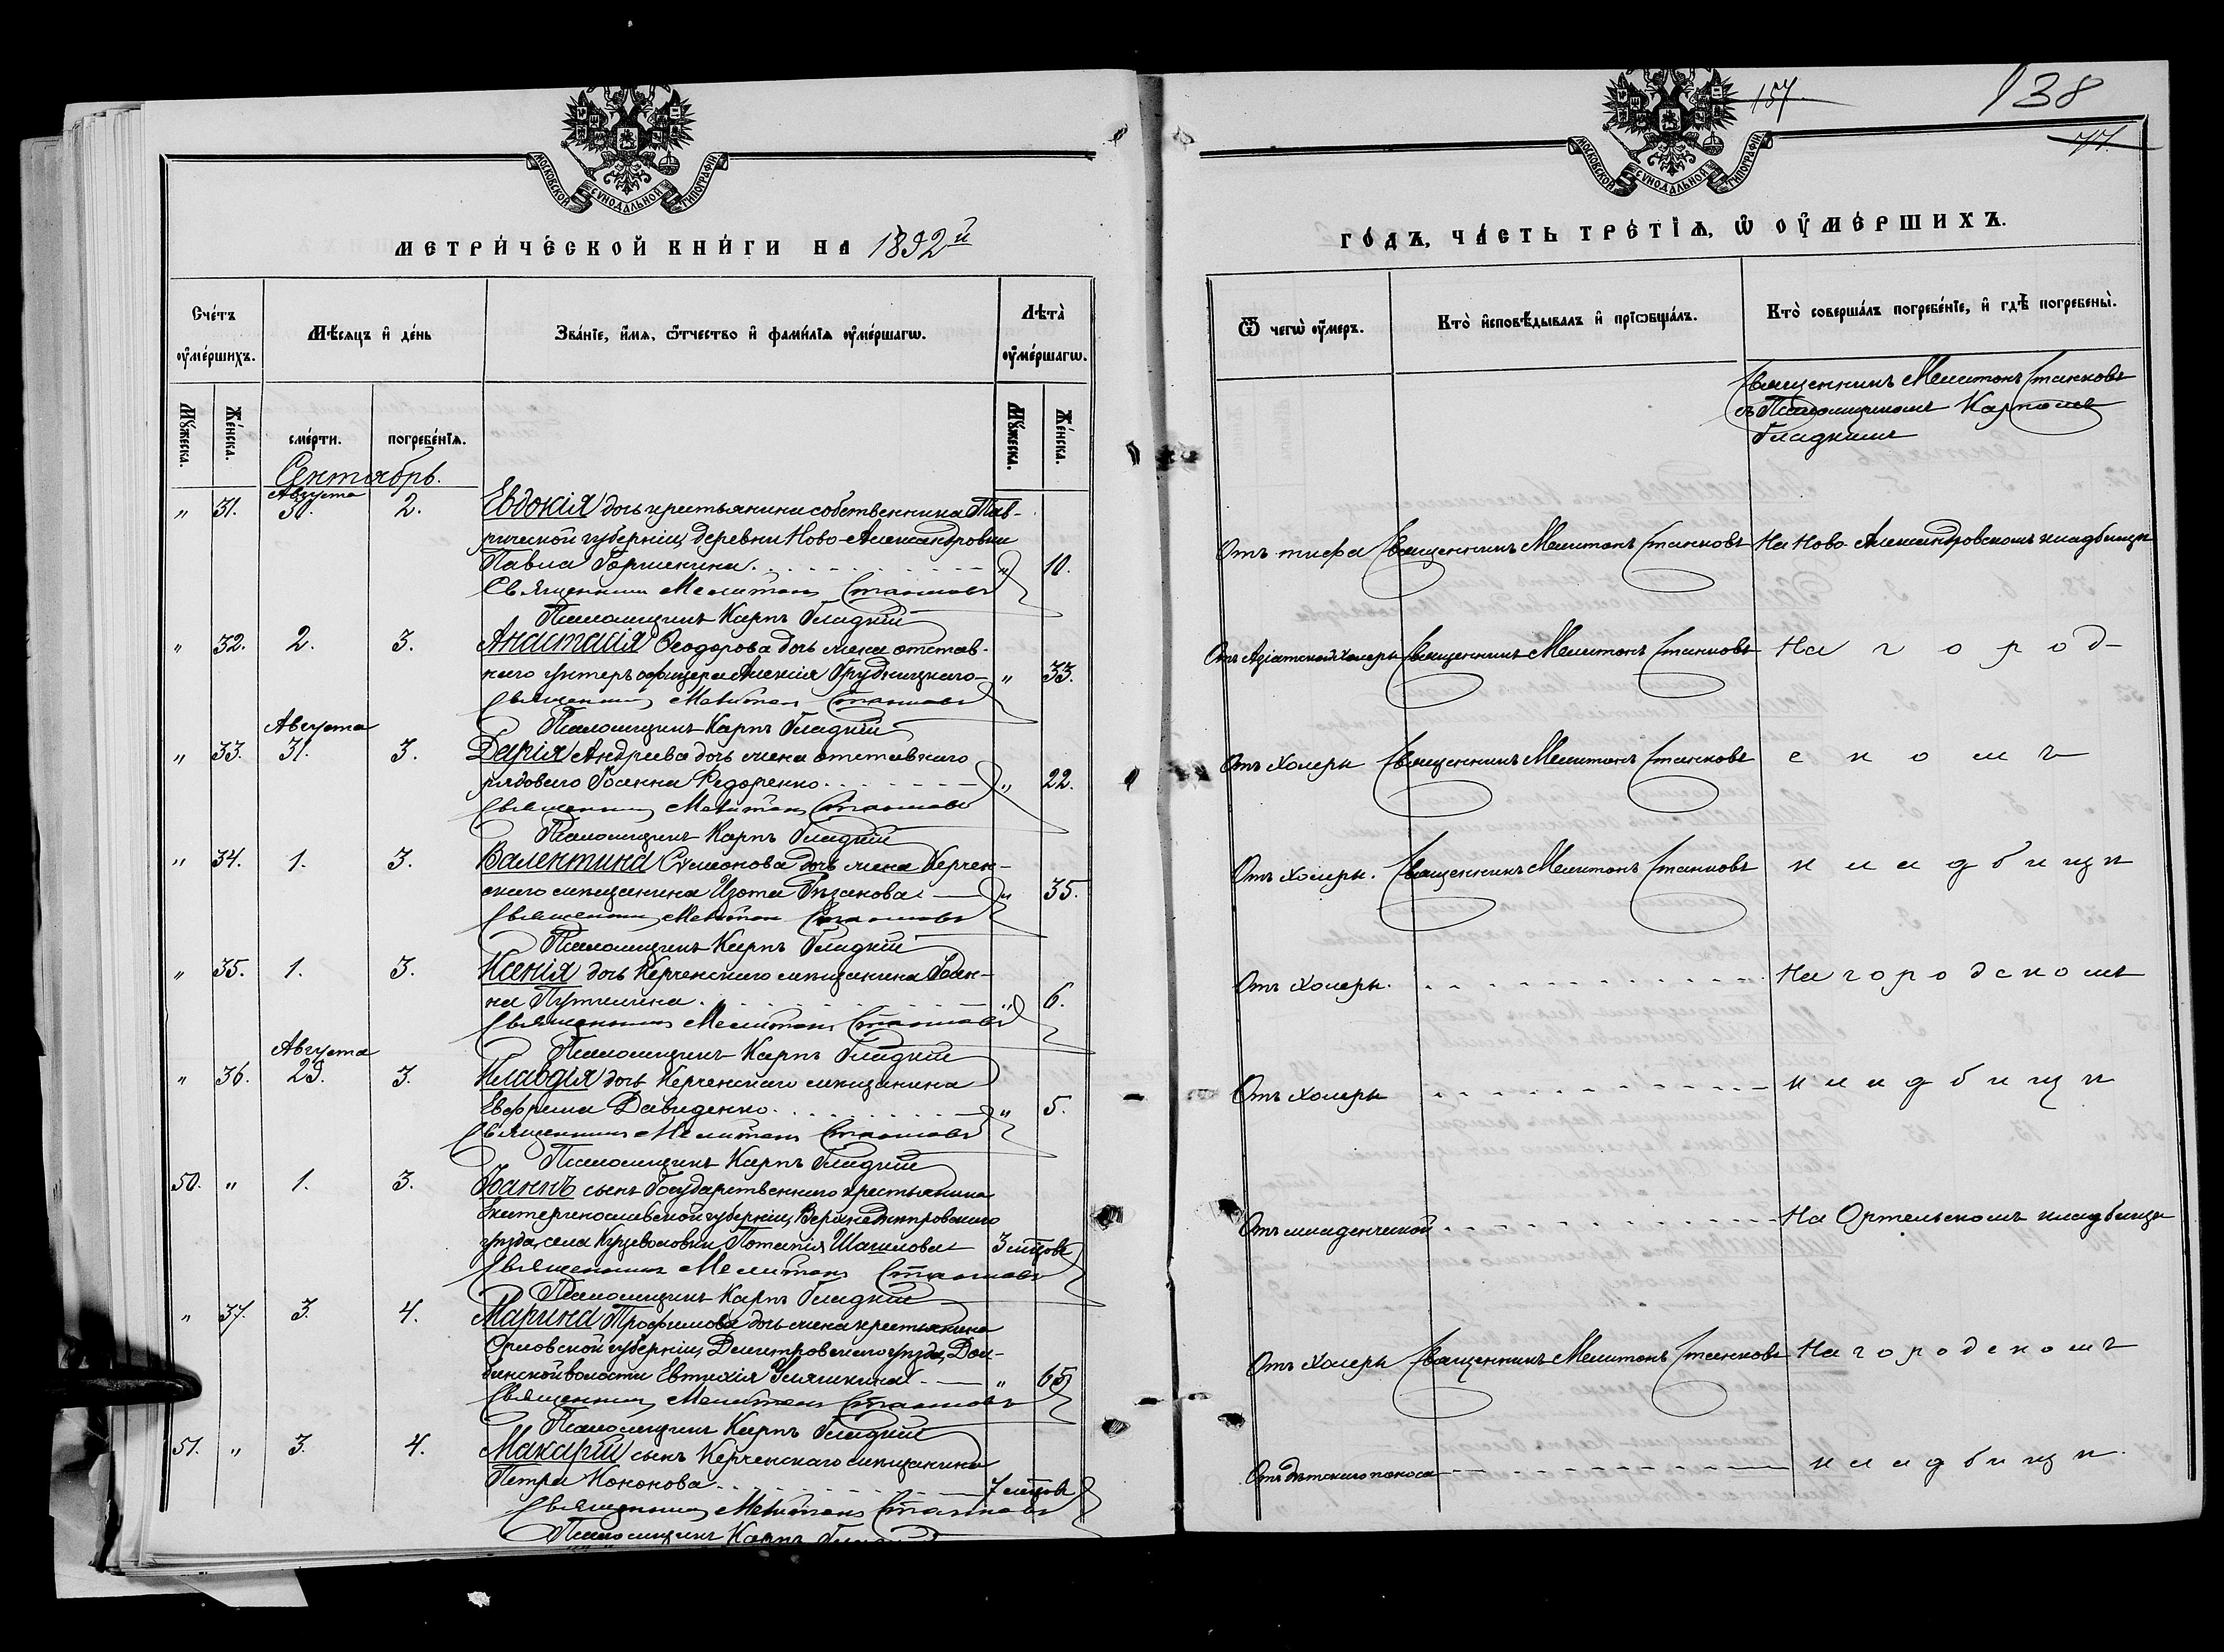 МОСКОВСКОЙ СУНОДАЛЬНОЙ ТИПОГРАФІИ
МЕТРИ́ЧЕСКОЙ КНИ́ГИ НА 1892й
Сче́тъ ᲂу҆ме́ршихъ.
Мѣ́сяцъ и҆ де́нь
Зва́нїе, и҆́мѧ, ѻ҆́тчество и҆ фами́лїѧ ᲂу҆ме́ршагѡ.
Лѣта̀ ᲂу҆ме́ршагѡ.
Мꙋ́жеска.
Же́нска.
сме́рти.
погребе́нїѧ.
Мꙋ́жеска.
Же́нска.
Сентябрь.
Августа
" 31. 31. 2. Евдокія дочь крестьянина собственника Тав-
рической губерніи, деревни Ново-Александровки
Павла Горшенина. " 10.
Священникъ Мелитонъ Станковъ
Псаломщикъ Карпъ Гладкій
" 32. 2. 3. Анастасія Ѳеодорова дочь жена отстав-
наго унтеръ офицера Алексія Грудницкаго " 33.
Священникъ Мелитонъ Станковъ
Псаломщикъ Карпъ Гладкій
Августа
" 33. 31. 3. Дарія Андреева дочь жена отставнаго
рядоваго Іоанна Федоренко. " 22.
Священникъ Мелитонъ Станковъ
Псаломщикъ Карпъ Гладкій
" 34. 1. 3. Валентина Сѵмеонова дочь жена Керчен-
скаго мѣщанина Изота " 35.
Священникъ Мелитонъ Станковъ
Псаломщикъ Карпъ Гладкій
" 35. 1. 3. Ксенія дочь Керченскаго мѣщанина Іоан-
на Путилина. " 6.
Священникъ Мелитонъ Станковъ
Псаломщикъ Карпъ Гладкій
Августа
" 36. 29. 3. Клавдія дочь Керченскаго мѣщанина
Ефрема Давиденко. " 5.
Священникъ Мелитонъ Станковъ
Псаломщикъ Карпъ Гладкій
50. " 1. 3. Іоаннъ сынъ Государственнаго крестьянина
Екатеринославской губерніи, Верхнеднѣпровскаго
уѣзда, села Потапія Шашлова 3 мѣсцовъ
Священникъ Мелитонъ Станковъ
Псаломщикъ Карпъ Гладкій
" 37. 3. 4. Марина Трофимова дочь жена крестьянина
Орловской губерніи, Дмитровскаго уѣзда, Дол-
бинской волости Евтихія " 65
Священникъ Мелитонъ Станковъ
Псаломщикъ Карпъ Гладкій
51. " 3. 4. Макарій сынъ Керченскаго мѣщанина
Петра Кононова. 7 мѣсцовъ
Священникъ Мелитонъ Станковъ
Псаломщикъ Карпъ
157.
138
77.
МОСКОВСКОЙ СУНОДАЛЬНОЙ ТИПОГРАФІИ
ГО́ДЪ, ЧА́СТЬ ТРЕ́ТЇѦ, Ѡ҆ ОУ҆МЕ́РШИХЪ.
Ѿ чегѡ̀ ᲂу҆́меръ.
Кто̀ и҆сповѣ́дывалъ и҆ прїѡбща́лъ.
Кто̀ соверша́лъ погребе́нїе, и҆ гдѣ̀ погребены̀.
Священникъ Мелитонъ Станковъ
съ Псаломщикомъ Карпомъ
Гладкимъ
Отъ тифа Священникъ Мелитонъ Станковъ На Ново-Александровскомъ кладбищѣ
Отъ Азіатской холеры Священникъ Мелитонъ Станковъ На город-
Отъ холеры Священникъ Мелитонъ Станковъ скомъ
Отъ холеры. Священникъ Мелитонъ Станковъ кладбищѣ
Отъ холеры. На городскомъ
Отъ холеры кладбищѣ
Отъ младенческой На Ортельскомъ кладбищѣ
Отъ холеры Священникъ Мелитонъ Станковъ На городскомъ
Отъ дѣтскаго поноса кладбищѣ.